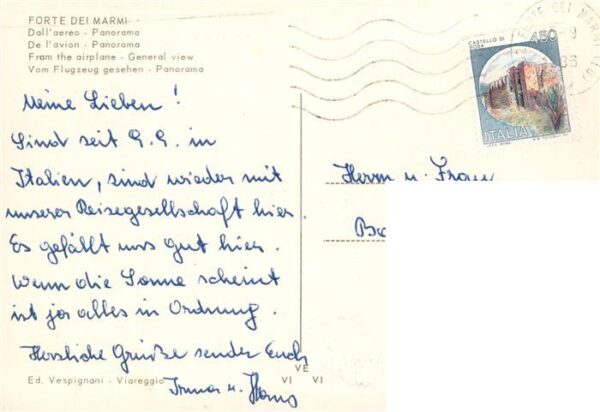 FORTE DEI MARMI
Dall'aereo - Panorama
De l'avion - Panorama
From the airplane - General view
Vom Flugzeug gesehen - Panorama
Meine Lieben!
Sind seit 9.9. in
Italien, sind wieder mit
unserer Reisegesellschaft hier.
Es gefällt uns gut hier.
Wenn die Sonne scheint
ist ja alles in Ordnung.
Herzliche Grüße sendet Euch
Irma u. Hans
Ed. Vespignani - Viareggio
VE
VI VI
CASTELLO DI
450
ITALIA
FORTE DEI MARMI (LU)
Herrn u. Frau